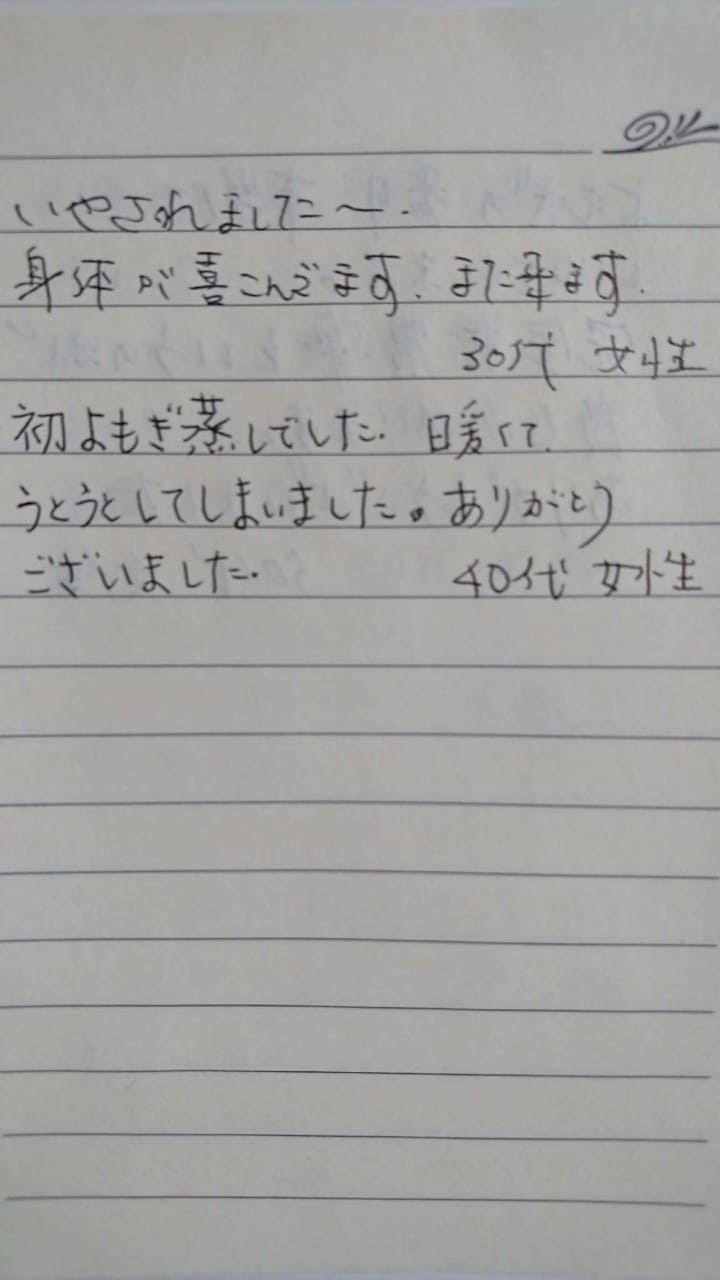 いやされました〜.
身体が喜こんでます. また来ます.
30代 女性
初よもぎ蒸しでした. 暖くて.
うとうとしてしまいました。ありがとう
ございました. 40代 女性